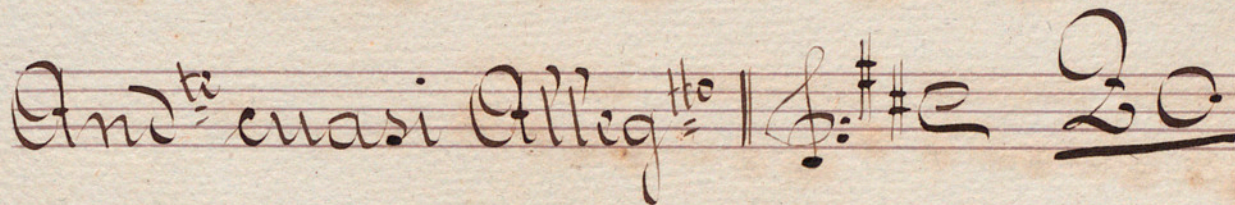 And.te cuasi Alleg.tto 20